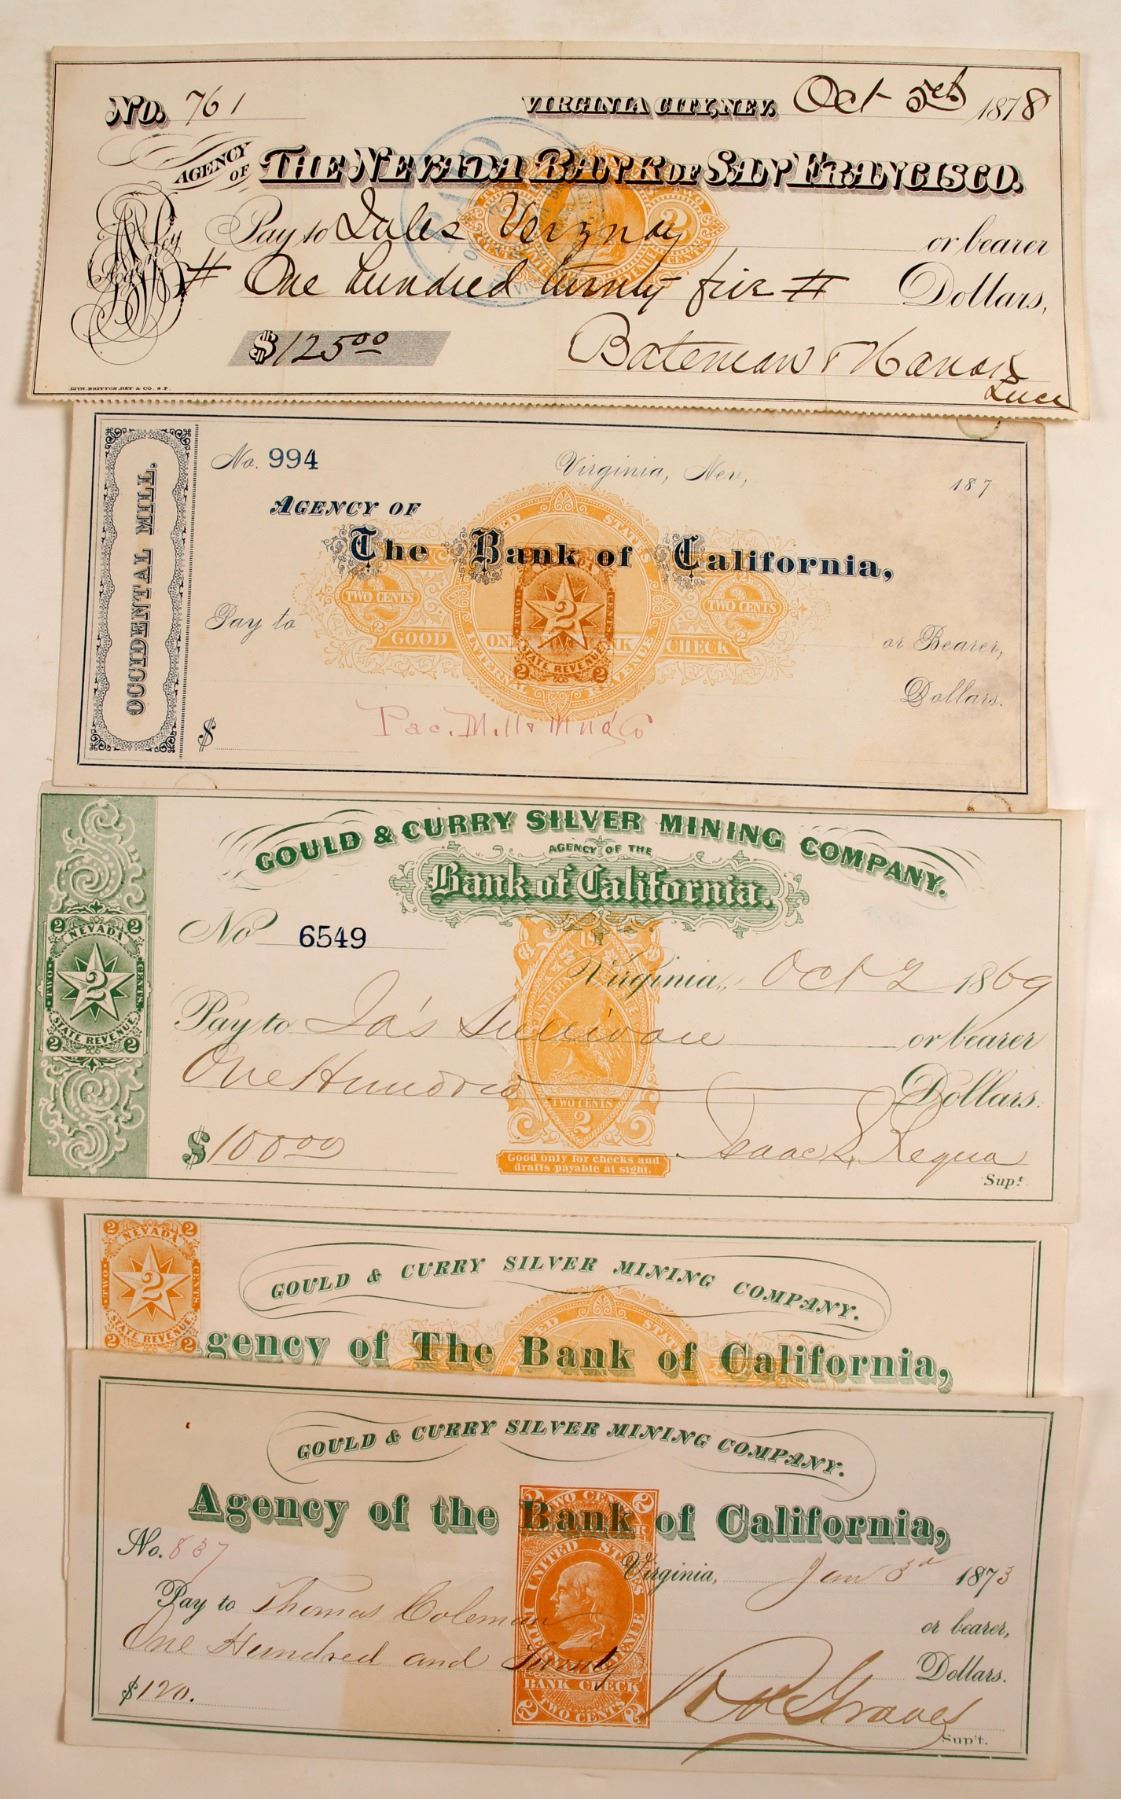 No. 761 VIRGINIA CITY, NEV. Oct 5th 1878
AGENCY OF THE NEVADA BANK OF SAN FRANCISCO.
PAID
Pay to Jules or bearer
# One hundred twenty five # Dollars,
$125.00
2
Bateman &
LITH. BRITTON, REY & CO. S.F.
OCCIDENTAL MILL.
No. 994 Virginia, Nev, 187
AGENCY OF
The Bank of California,
UNITED STATES
TWO CENTS 2 TWO CENTS
2
STATE REVENUE
2 2
GOOD ONLY BANK CHECK
INTERNAL REVENUE
Pay to or Bearer,
Dollars.
Pac. Mill & Mng Co
$
GOULD & CURRY SILVER MINING COMPANY.
AGENCY OF THE
Bank of California.
2 NEVADA 2
TWO 2 CENTS
STATE REVENUE
2 2
No 6549
Virginia, Oct 2 1869
Pay to Ja's Sullivan or bearer
One Hundred Dollars.
TWO CENTS
2
$100.00
Good only for checks and
drafts payable at sight.
Isaac L. Requa
Supt.
2 NEVADA 2
TWO 2 CENTS
STATE REVENUE
2 2
GOULD & CURRY SILVER MINING COMPANY.
Agency of The Bank of California,
GOULD & CURRY SILVER MINING COMPANY.
Agency of the Bank of California,
No. 837 Virginia, Jan 3d 1873
Pay to Thomas Coleman or bearer,
One Hundred and Twenty Dollars.
$120.
2 TWO CENTS 2
UNITED STATES
INTERNAL REVENUE
BANK CHECK
2 TWO CENTS 2
Graves
Sup't.